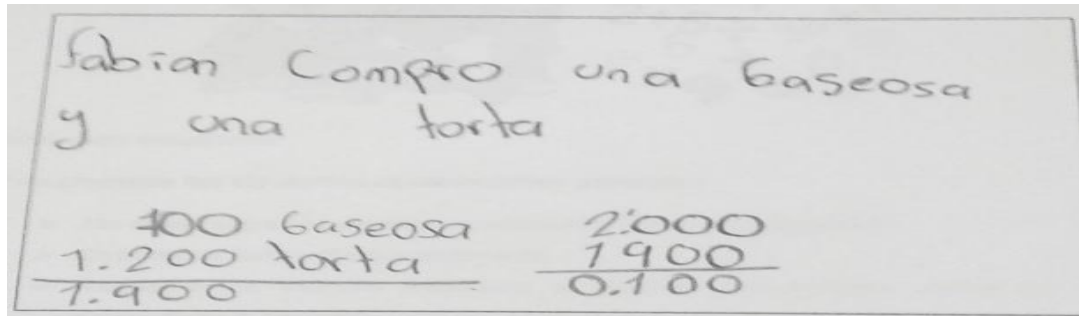 fabian Compro una Gaseosa
y una torta
700 Gaseosa 2.000
1.200 torta 1900
1.900 0.100